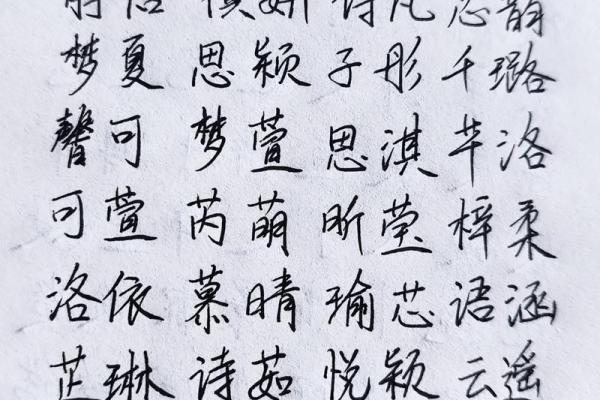 诗凡 思韵
梦夏 思颖 子彤 千璐
馨可 梦萱 思淇 芊洛
可萱 芮萌 昕莹 梓柔
洛依 慕晴 瑜芯 语涵
芷琳 诗茹 悦颖 云遥